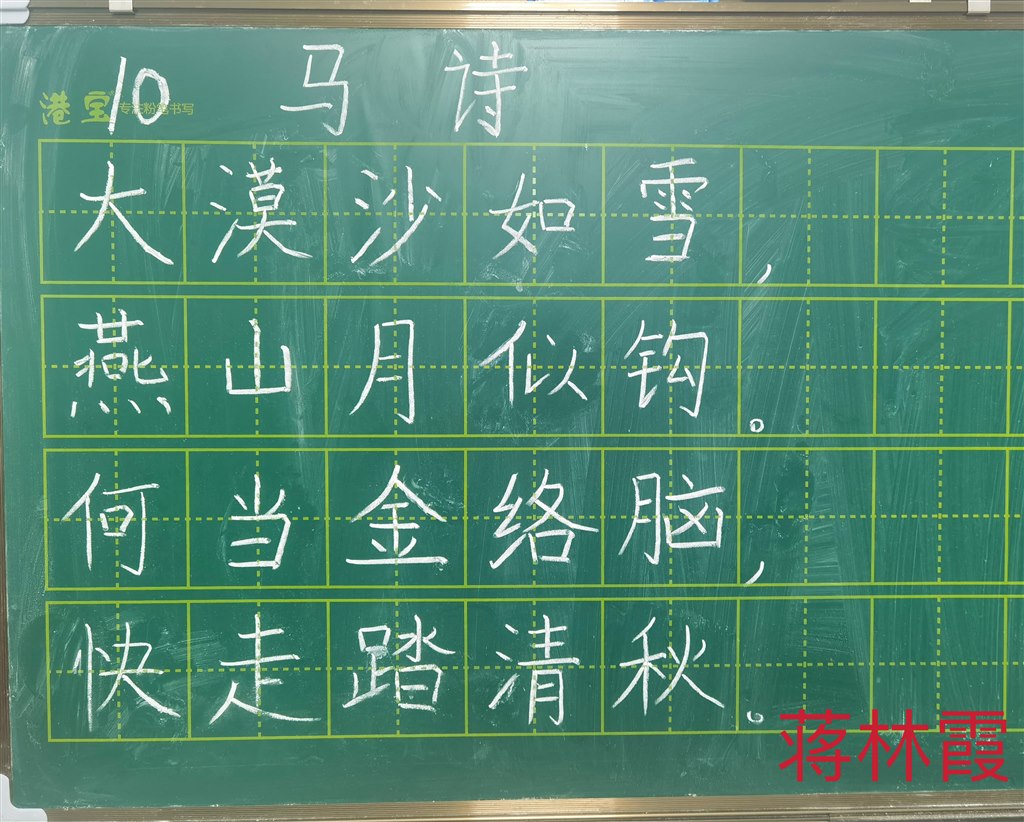 港宝 专注粉笔书写
10 马诗
大漠沙如雪,
燕山月似钩。
何当金络脑,
快走踏清秋。
蒋林霞